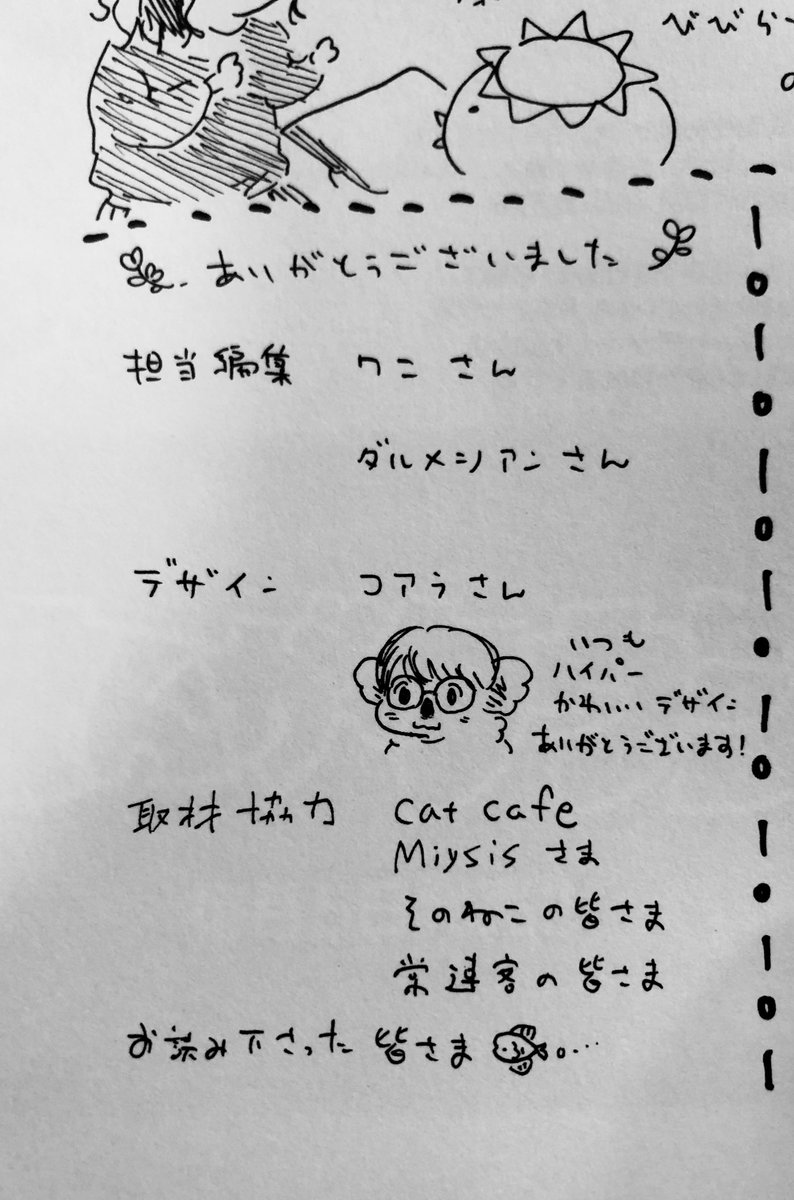 びびらー
ありがとうございました
担当編集 ワニさん
ダルメシアンさん
デザイン コアラさん
いつも
ハイパー
かわいいデザイン
ありがとうございます!
取材協力 cat cafe
Miysis さま
そのねこの皆さま
常連客の皆さま
お読み下さった皆さま